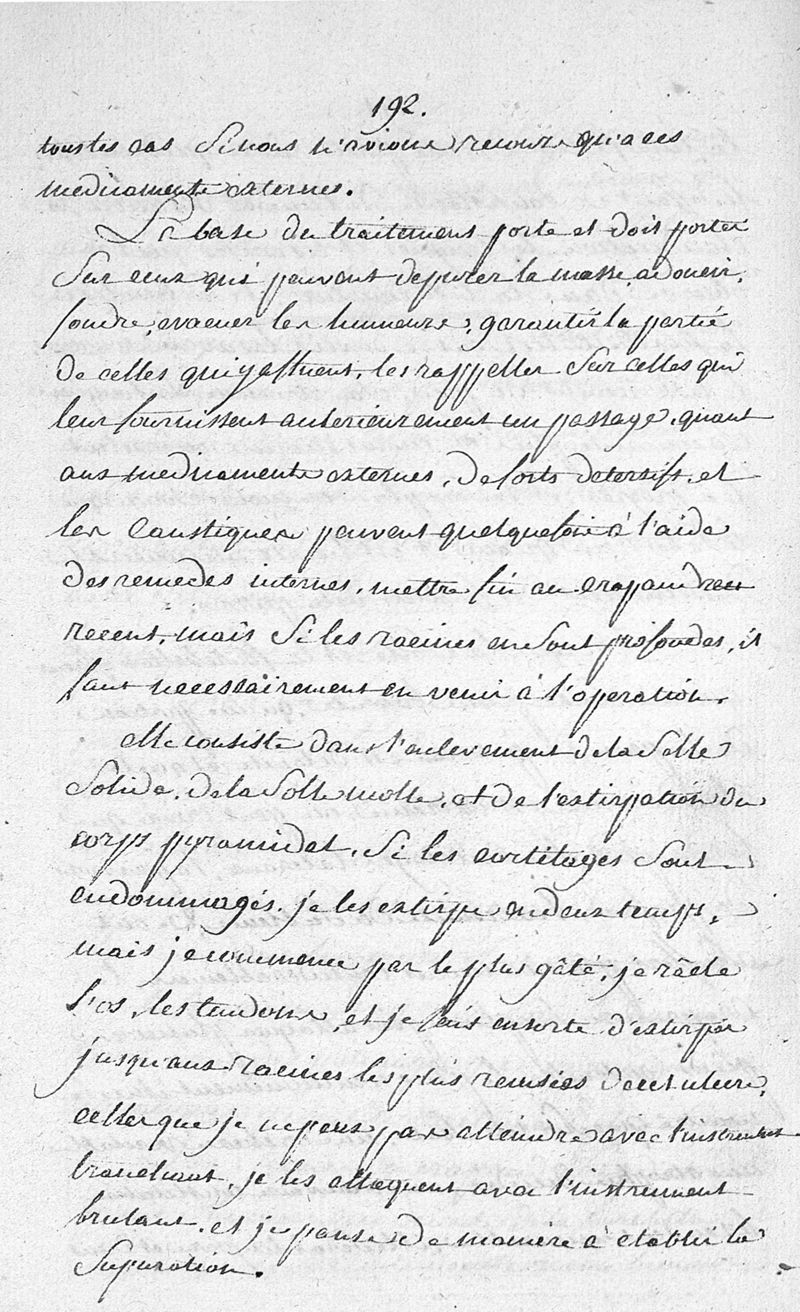 192.
tous les cas si nous n'avions recours qu'a ces
medicaments externes.
La base du traitement porte et dois porter
sur ceux qui peuvent depurer la masse, adoucir,
fondre, evacuer les humeurs, garantir la partie
de celles qui y affluent, les rappeller sur celles qui
leur fournissent anterieurement un passage, quant
aux medicaments externes, de forts detersifs, et
les caustiques peuvent quelquefois à l'aide
des remedes internes, mettre fin au crapaud
recent, mais si les racines en sont profondes, il
faut necessairement en venir à l'operation.
elle consiste dans l'enlevement de la solle
solide, de la solle molle, et de l'extirpation du
corps pyramidal, si les cartilages sont
endommagés, je les extirpe en deux temps,
mais je commence par le plus gâté, je râcle
l'os, les tendons, et je fais ensorte d'extirper
jusqu'aux racines les plus remsées de cet ulcere,
celles que je ne peus pas atteindre avec l'instrument
tranchant, je les attaquent avec l'instrument
brulant, et je panse de maniere à etablir la
supuration.